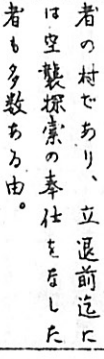 者の村であり、立退前迄に
は空襲探索の奉仕をなした
者も多数ある由。